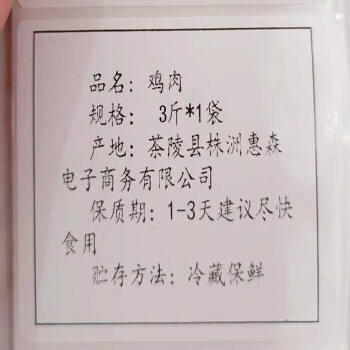 品名：鸡肉
规格： 3斤*1袋
产地：茶陵县株洲惠森
电子商务有限公司
保质期：1-3天建议尽快
食用
贮存方法：冷藏保鲜